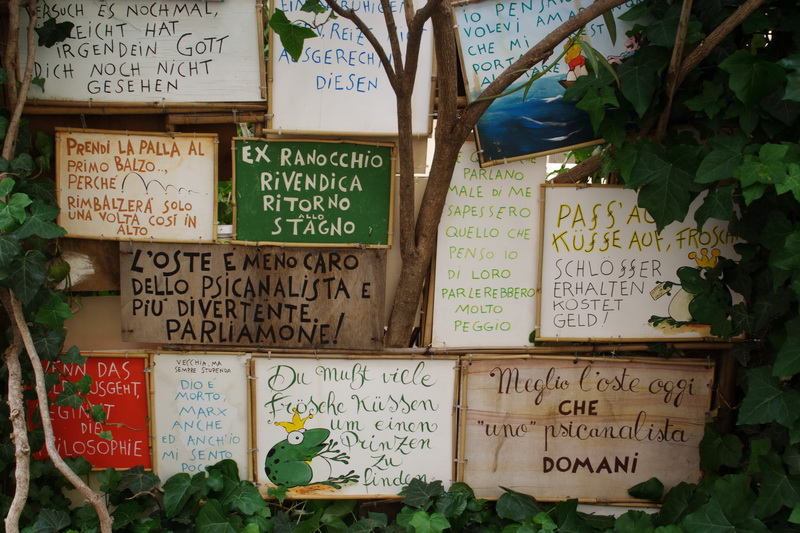 VERSUCH ES NOCHMAL,
VIELLEICHT HAT
IRGENDEIN GOTT
DICH NOCH NICHT
GESEHEN
REIZ
AUSGERECHNET
DIESEN
IO PENSAVO
VOLEVI AMA
CHE MI
PORTA
PRENDI LA PALLA AL
PRIMO BALZO..,
PERCHE'
RIMBALZERÀ SOLO
UNA VOLTA COSÌ IN
ALTO
EX RANOCCHIO
RIVENDICA
RITORNO
ALLO
STAGNO
PARLANO
MALE DI ME
SAPESSERO
QUELLO CHE
PENSO IO
DI LORO
PARLEREBBERO
MOLTO
PEGGIO
PASS' AUF
KÜSSE AUF, FROSCH
SCHLÖSSER
ERHALTEN
KOSTET
GELD!
L'OSTE E MENO CARO
DELLO PSICANALISTA E
PIU' DIVERTENTE.
PARLIAMONE!
WENN DAS
AUSGEHT,
BEGINNT
DIE
PHILOSOPHIE
VECCHIA, MA
SEMPRE STUPENDA
DIO E'
MORTO,
MARX
ANCHE
ED ANCH'IO
MI SENTO
POCO
Du mußt viele
Frösche küssen
um einen
Prinzen
zu
finden
Meglio l'oste oggi
CHE
"uno" psicanalista
DOMANI